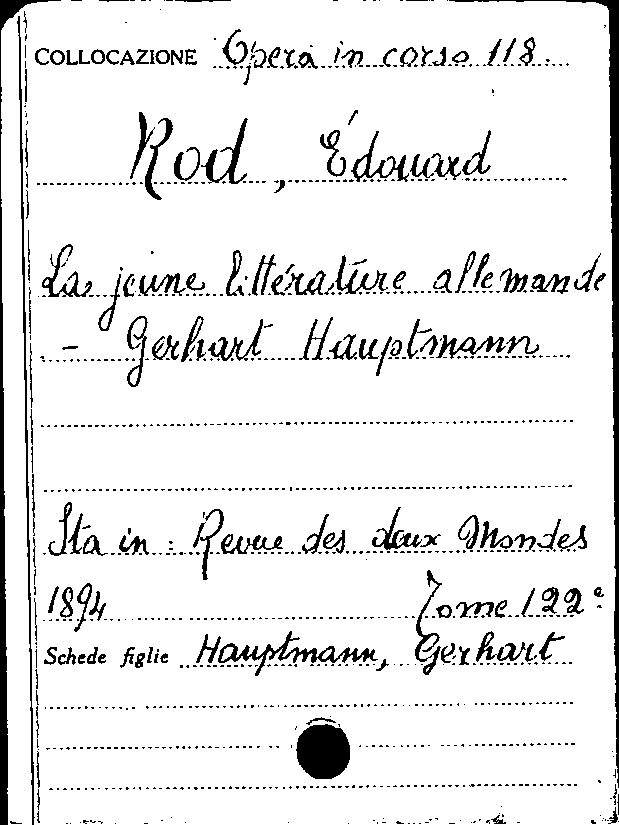 COLLOCAZIONE Opera in corso 118.
Rod, Édouard
La jeune littérature allemande
- Gerhart Hauptmann
Sta in: Revue des deux Mondes
1894 Tome 122e
Schede figlie Hauptmann, Gerhart